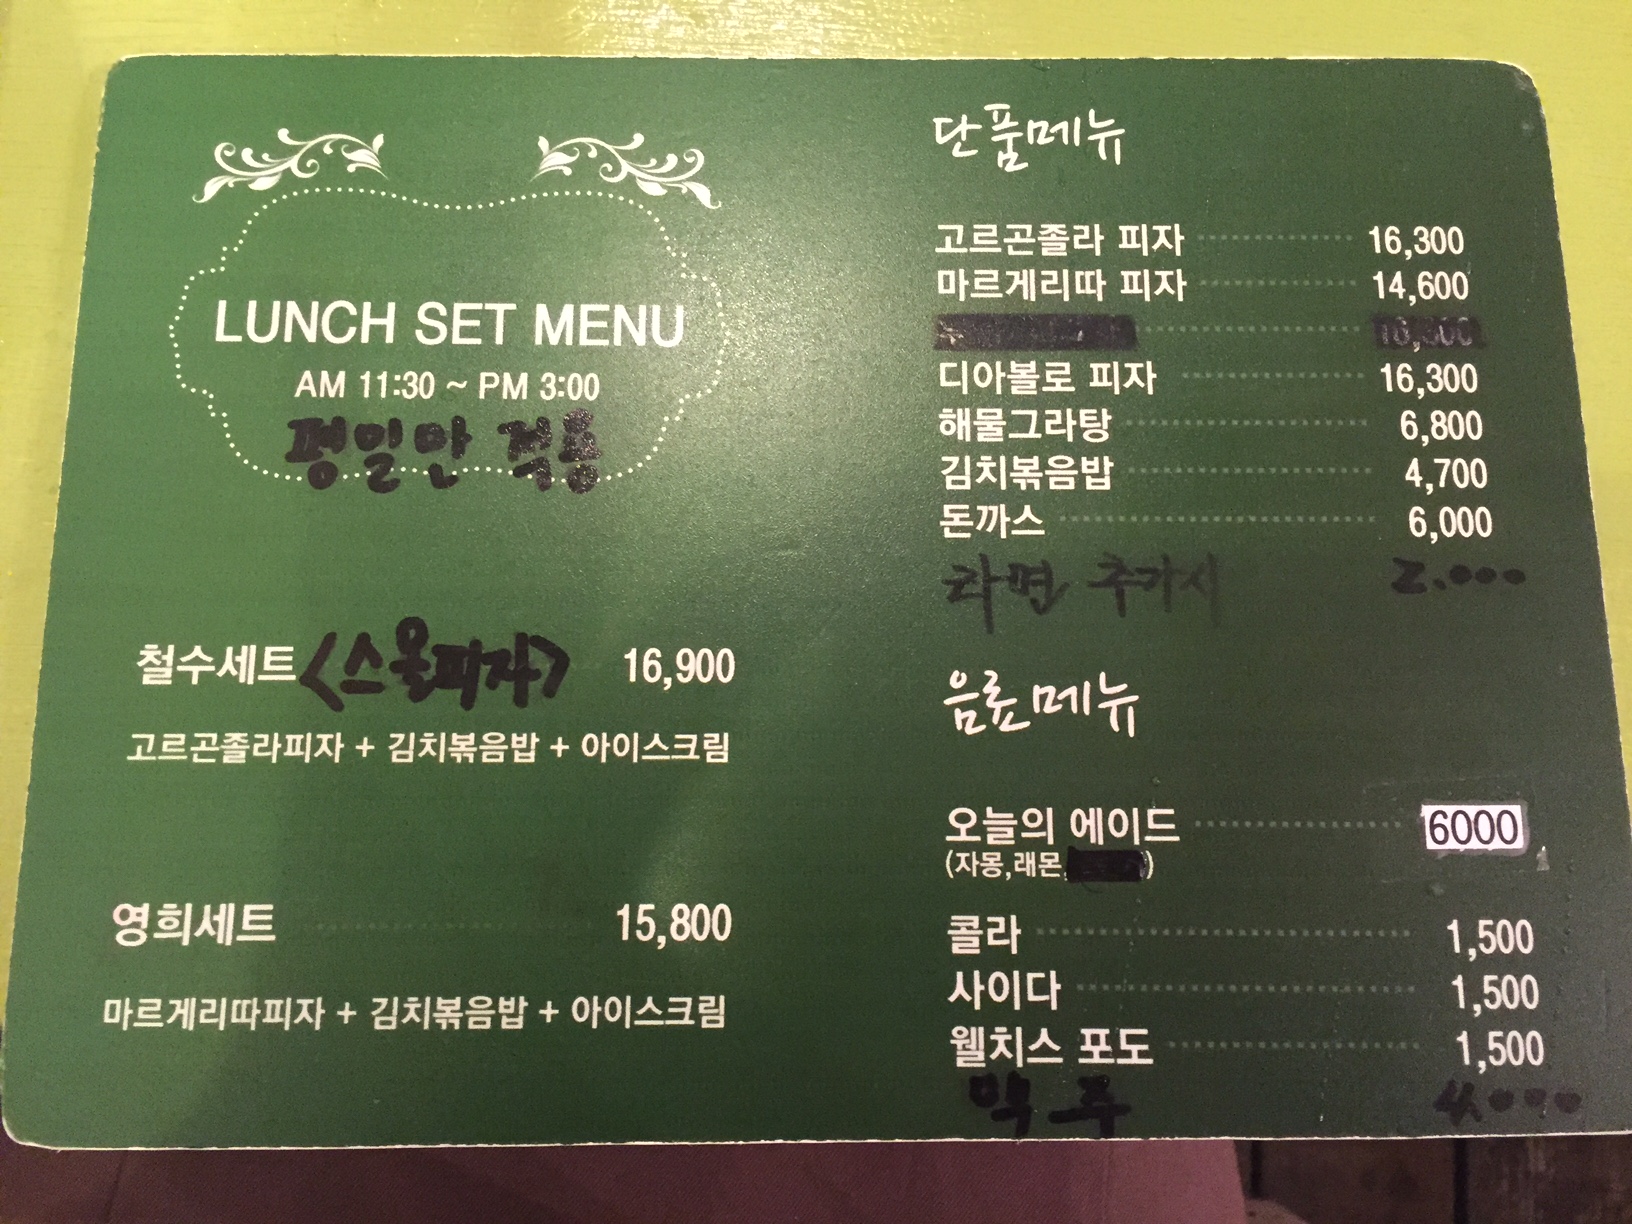 LUNCH SET MENU
AM 11:30 ~ PM 3:00
평일만 적용
철수세트 <스몰피자> 16,900
고르곤졸라피자 + 김치볶음밥 + 아이스크림
영희세트 15,800
마르게리따피자 + 김치볶음밥 + 아이스크림
단품메뉴
고르곤졸라 피자 16,300
마르게리따 피자 14,600
디아볼로 피자 16,300
해물그라탕 6,800
김치볶음밥 4,700
돈까스 6,000
라면 추가시 2.000
음료메뉴
오늘의 에이드 6000
(자몽,래몬, )
콜라 1,500
사이다 1,500
웰치스 포도 1,500
맥주 4.000